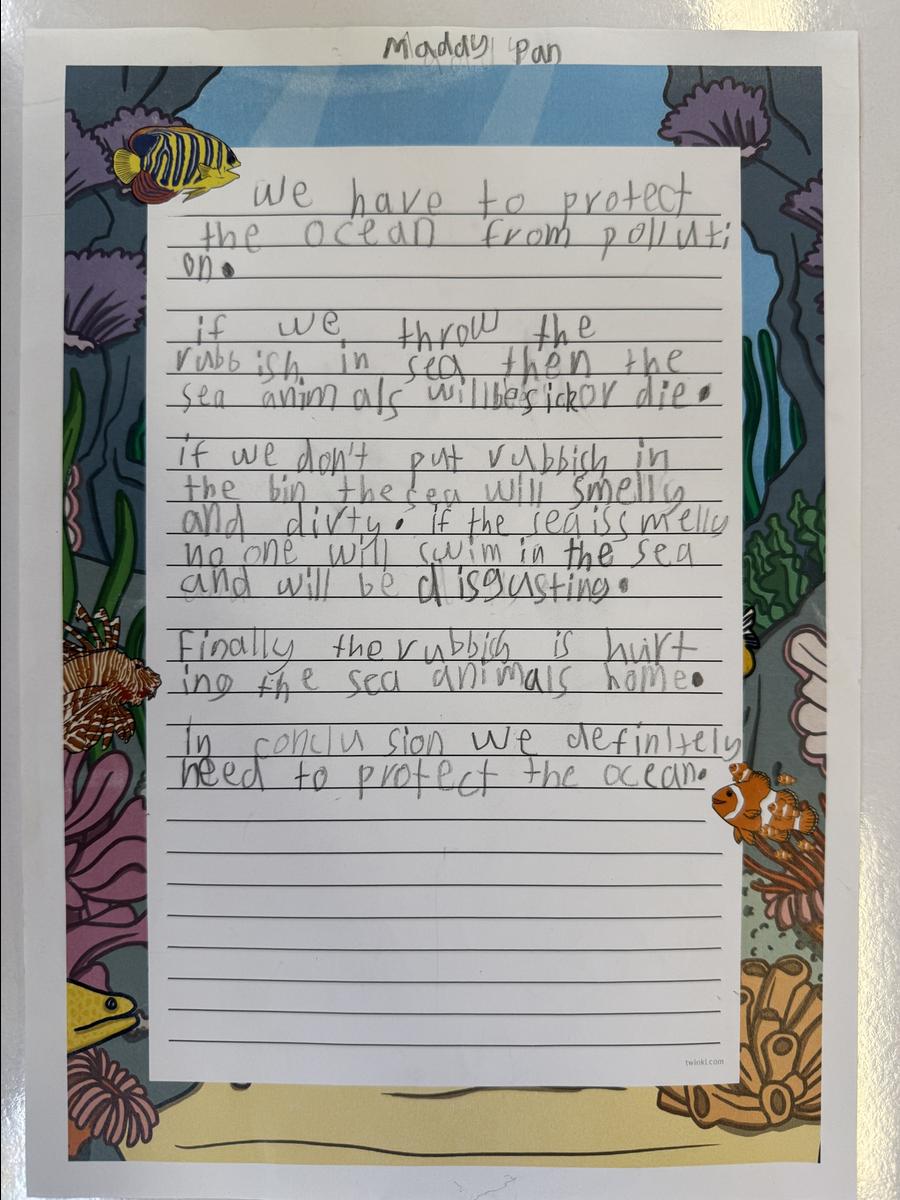 Maddy Pan
We have to protect
the ocean from polluti
on.
if we throw the
rubbish in sea then the
sea animals will be sick or die.
if we don't put rubbish in
the bin the sea will smelly
and dirty. if the sea is smelly
no one will swim in the sea
and will be disgusting.
Finally the rubbish is hurt
ing the sea animals home.
In conclusion we definitely
need to protect the ocean.
twinkl.com